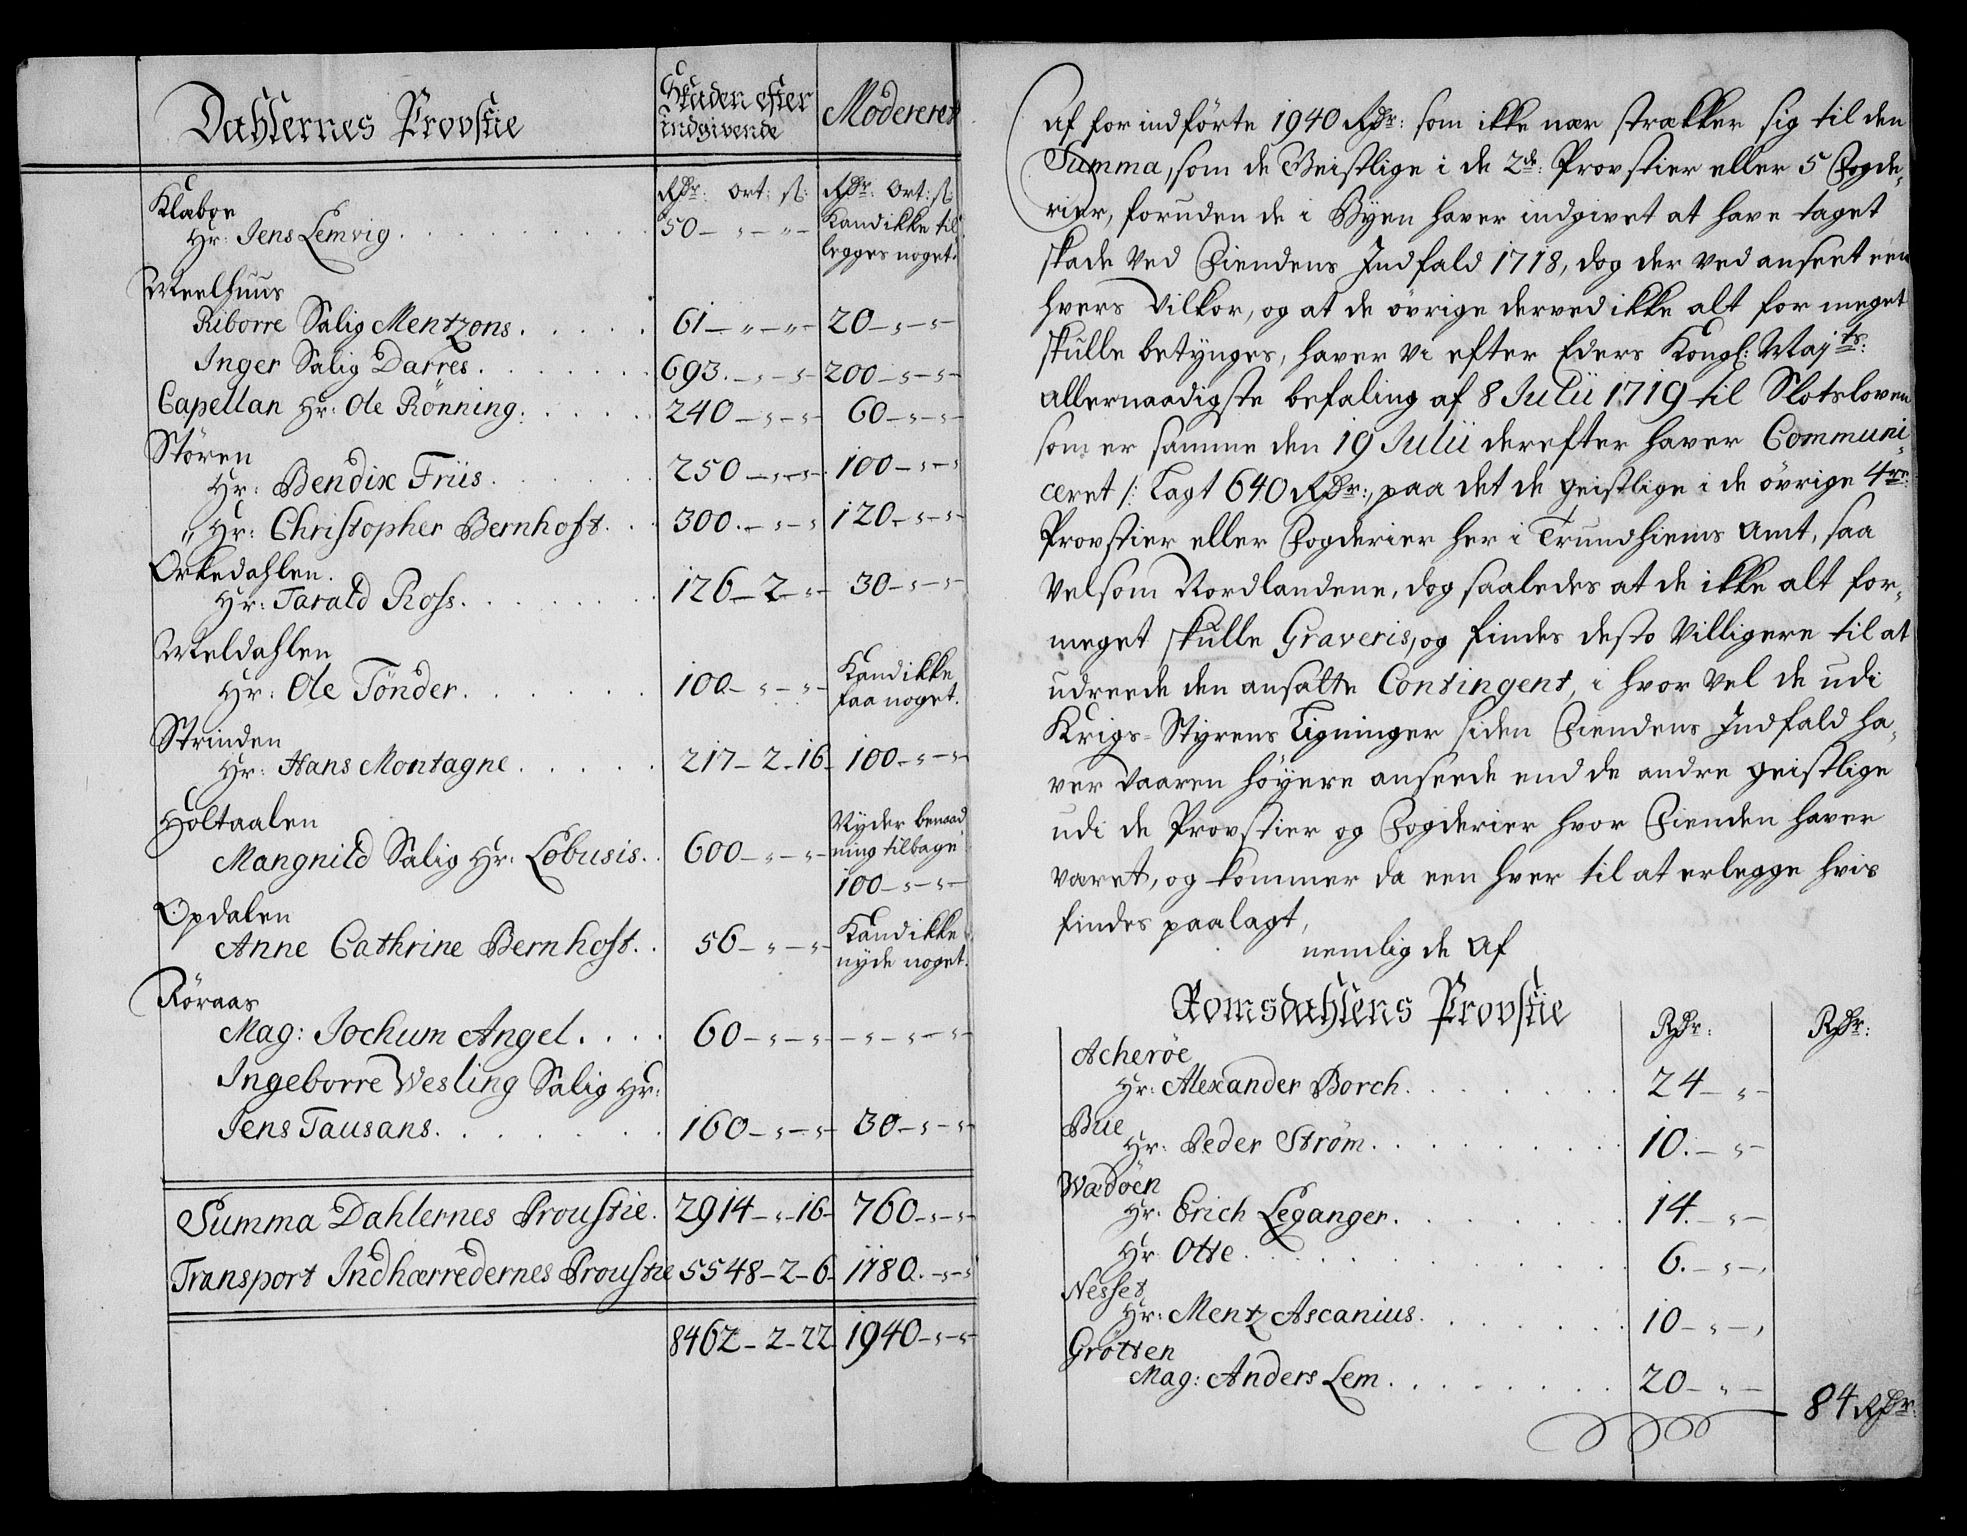 Dahlernes Provstie
Skaden efter indgivende
Modereret
Rdr: ort: s: Rdr: ort: s:
Klaboe
Hr: Jens Lemvig . . . 50 — „ — „ — Kand ikke til
legges noget.
Meelhuus
Riborre Salig Mentzons . . . 61 — „ — „ — 20 — „ — „ —
Inger Salig Darres . . . 693. — „ — „ — 200 — „ — „ —
Capellan Hr: Ole Rönning . . . 240 — „ — „ — 60 — „ — „ —
Stören
Hr: Bendix Friis . . . 250 — „ — „ — 100 — „ — „
„ Hr: Christopher Bernhoft . . . 300. — „ — „ 120 — „ — „ —
Orkedahlen.
Hr: Tarald Ross . . . 126 — 2 — „ — 30 — „ — „ —
Meldahlen
Hr: Ole Tönder . . . 100 — „ — „ — Kand ikke
faa noget.
Strinden
Hr: Hans Montagne . . . 217 — 2 — 16 — 100 — „ — „
Holtaalen
Mangnild Salig Hr: Lobusis . . 600 — „ — „ — Nyder benaad
ning tilbage
100 — „ — „ —
Opdalen
Anne Cathrine Bernhoft . . 56 — „ — „ — Kand ikke
nyde noget.
Röraas
Mag: Jochum Angel . . . . 60 — „ — „ — — „ — „ — „ —
Ingeborre Wesling Salig Hr:
Jens Tausans . . . 160 — „ — „ — 30 — „ — „ —
Summa Dahlernes Proustie. 2914 — „ — 16 — 760 — „ — „ —
Transport Indhærredernes Proustie 5548 — 2 — 6 — 1180. — „ — „
8462 — 2 — 22 — 1940 — „ — „ —
Af for indförte 1940 Rdr: som ikke nær strækker sig til den
Summa, som de Geistlige i de 2de: Provstier eller 5 Fogde„
rier, foruden de i Byen haver indgivet at have taget
skade ved Fiendens Indfald 1718, dog der ved anseet een
hvers Vilkor, og at de övrige derved ikke alt for meget
skulle betynges, haver Vi efter Eders Kongl: Mayts:
allernaadigste befaling af 8 Julii 1719 til Slotsloven
som er samme den 19 Julii derefter haver Communi„
ceret /: Lagt 640 Rdr:, paa det de geistlige i de övrige 4re:
Provstier eller Fogderier her i Trundhiems Amt, saa
velsom Nordlandene, dog saaledes at de ikke alt for„
meget skulle Graveris, og findes desto Villigere til at
udreede den ansatte Contingent, i hvor vel de udi
Krigs-Styrens Ligninger siden Fiendens Indfald ha„
ver vaaren höyere anseede end de andre geistlige
udi de Provstier og Fogderier hvor Fienden haver
været, og kommer da een hver til at erlegge hvis
findes paalagt,
nemlig de Af
Romsdahlens Provstie
Rdr: Rdr:
Acheröe
Hr: Alexander Borch . . . 24 — „ —
Bue
Hr: Peder Ström . . . 10. — „ —
Wædöen
Hr: Erich Leganger . . . 14. — „ —
Hr: Otte . . . 6. — „ —
Nesset
Hr: Mentz Ascanius . . . 10 — „ —
Grötten
Mag: Anders Lem . . . 20 — „ —
84 Rdr: